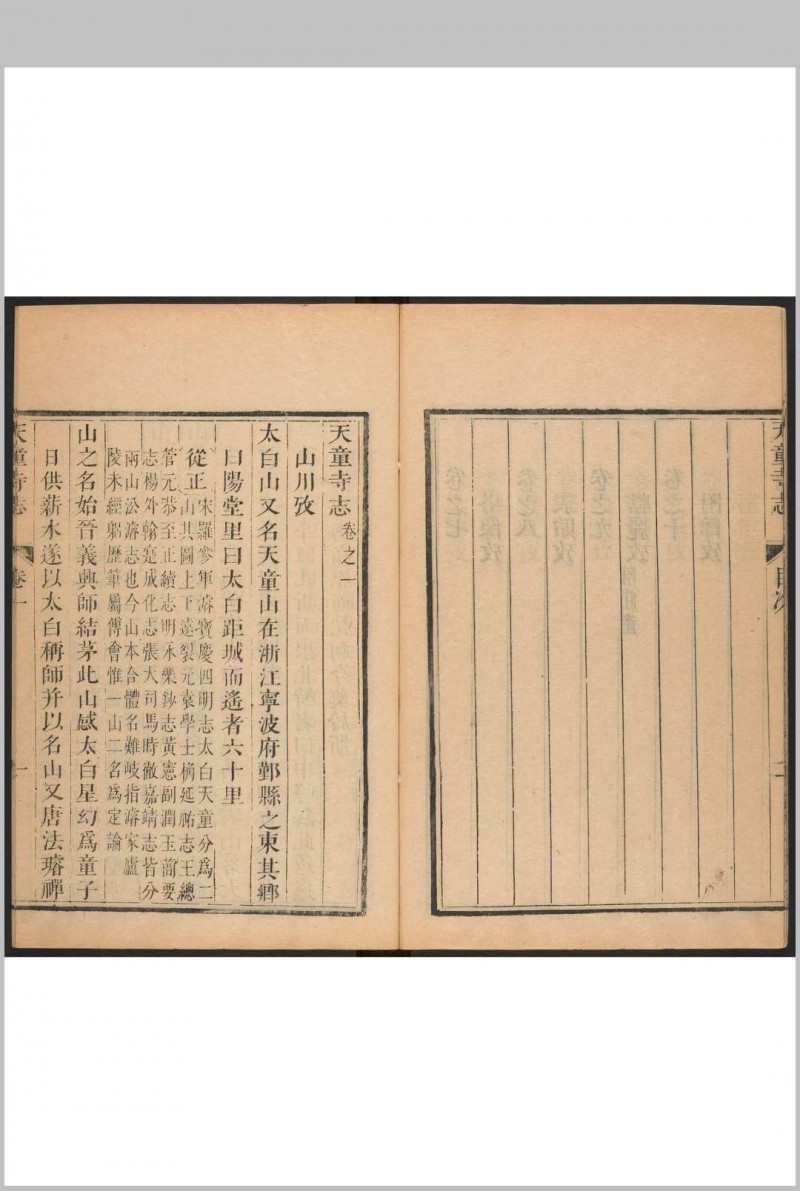 天童寺志 目次 二
天童寺志 卷之一
山川攷
太白山又名天童山在浙江寧波府鄞縣之東其鄉
曰陽堂里曰太白距城而遙者六十里
從正 宋羅叅軍濬寶慶四明志太白天童分爲二
山其圖上下邈裂元袁學士桷延祐志王總
管元恭至正續志明永樂鈔志黃憲副潤玉簡要
志楊外翰寔成化志張大司馬時徹嘉靖志皆分
兩山沿濬志也今山本合體名難岐指濬家廬
陵未經躬歷筆屬傅會惟一山二名爲定論
山之名始晉義興師結茅此山感太白星幻爲童子
日供薪水遂以太白稱師并以名山又唐法璿禪
天童寺志 卷一 一